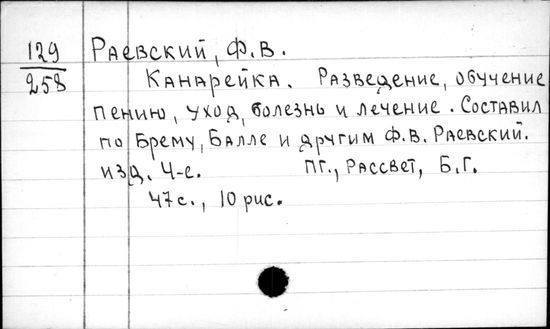 129 Раевский, Ф.В.
258 Канарейка. Разведение, обучение
пению, уход, болезнь и лечение. Составил
по Брему, Балле и другим Ф.В. Раевский.
изд. 4-е. ПГ., Рассвет, Б.Г.
47 с., 10 рис.